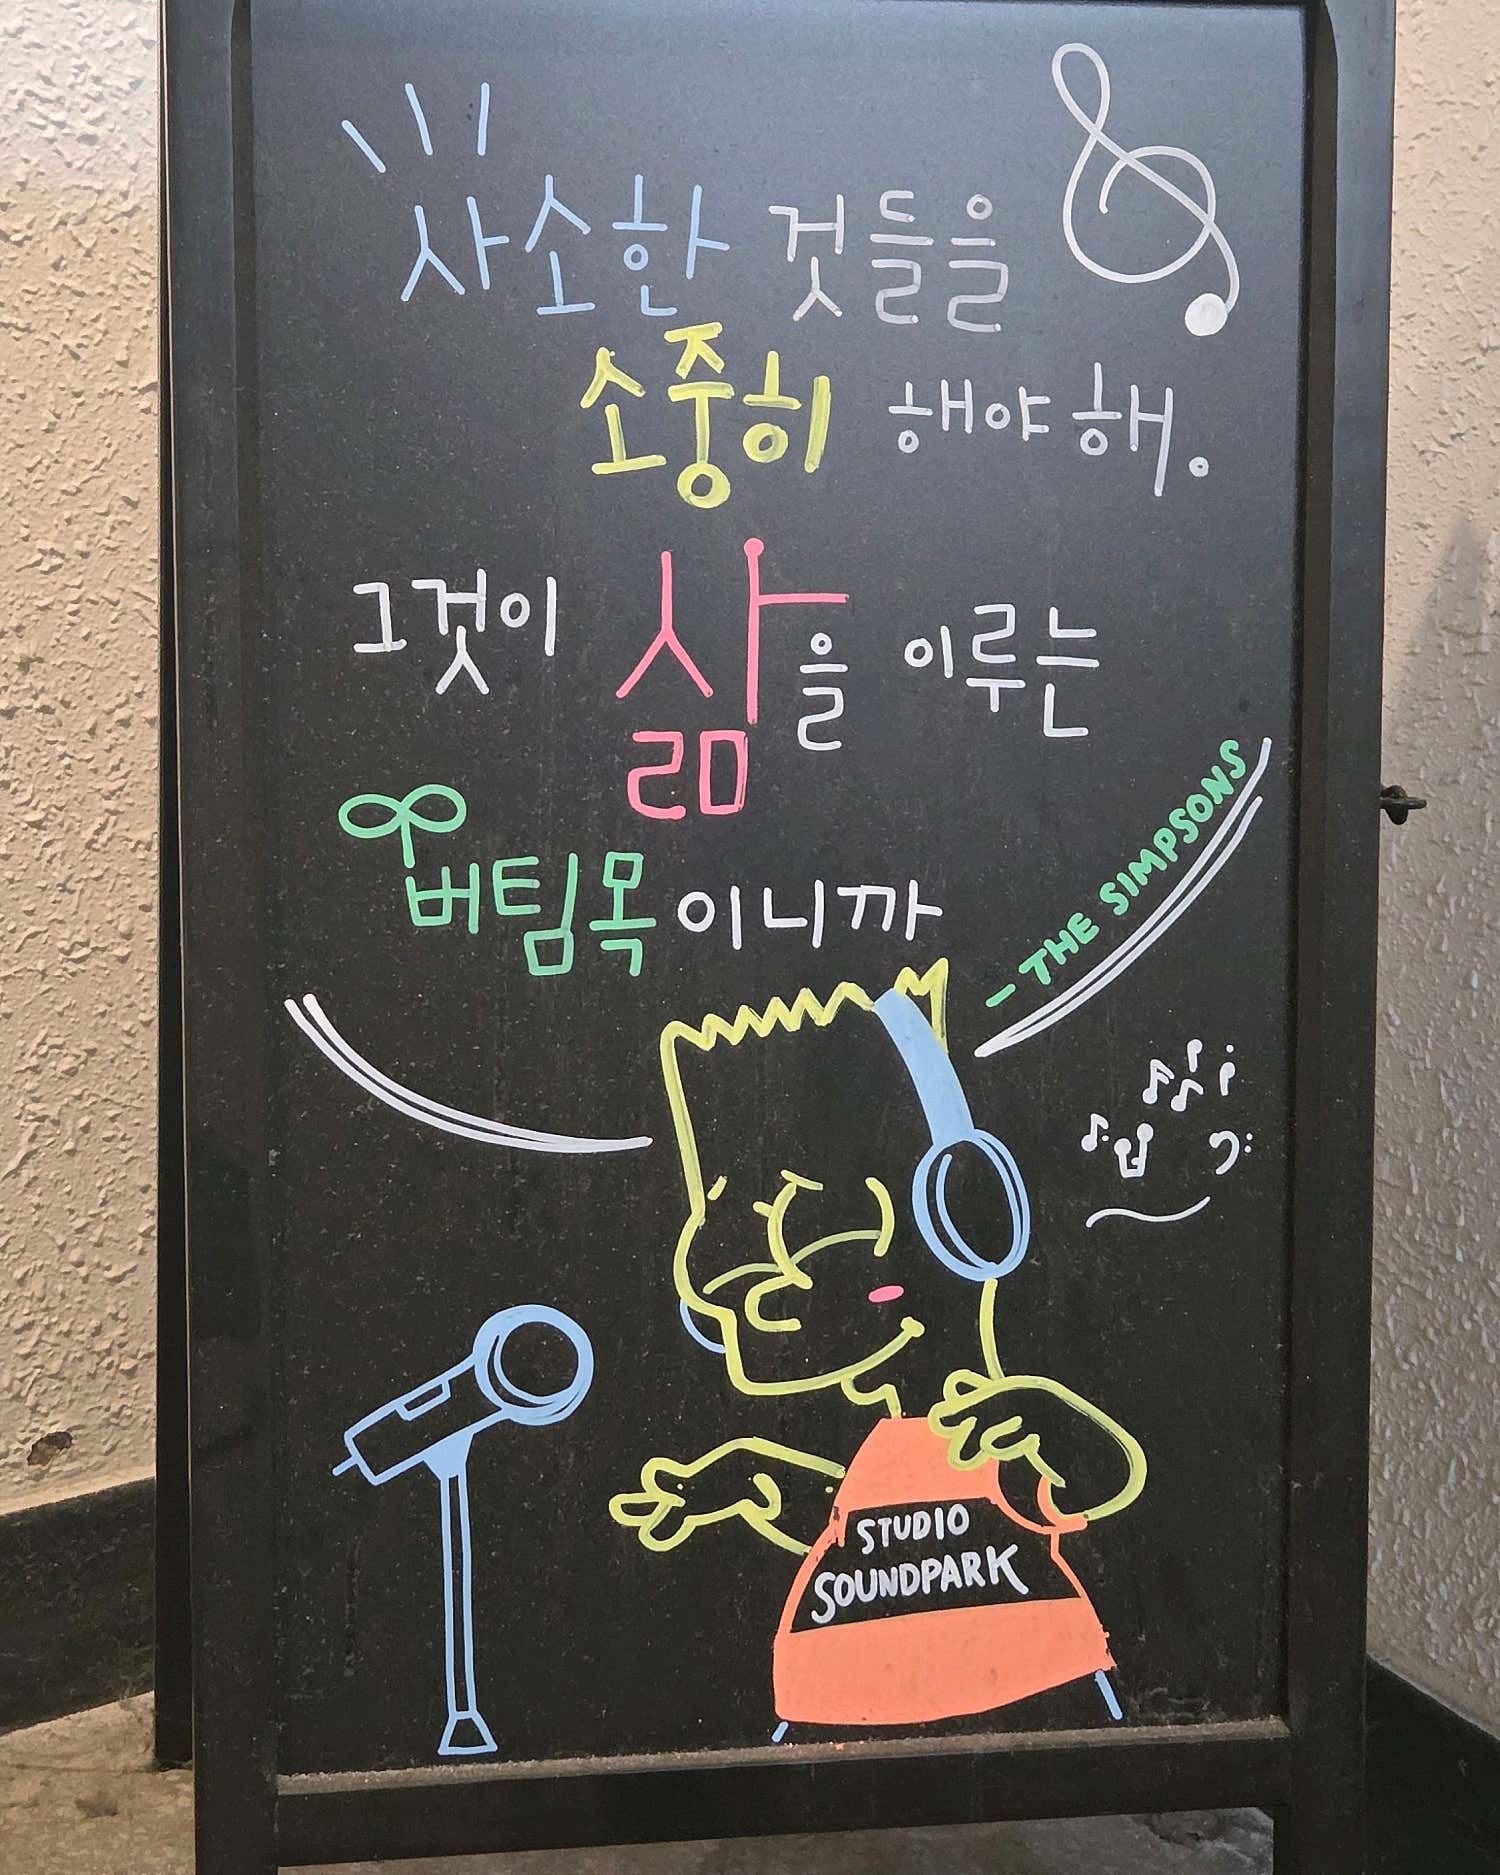 사소한 것들을
소중히 해야 해.
그것이 삶을 이루는
버팀목이니까
- THE SIMPSONS
STUDIO
SOUNDPARK